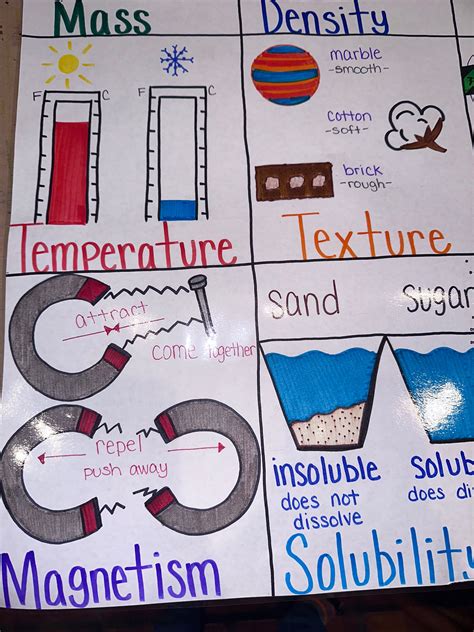 Mass
Density
F C
F C
Temperature
marble
-smooth-
cotton
-soft-
brick
-rough-
Texture
attract
come together
repel
push away
Magnetism
sand
sugar
insoluble
does not
dissolve
solub
does di
Solubility